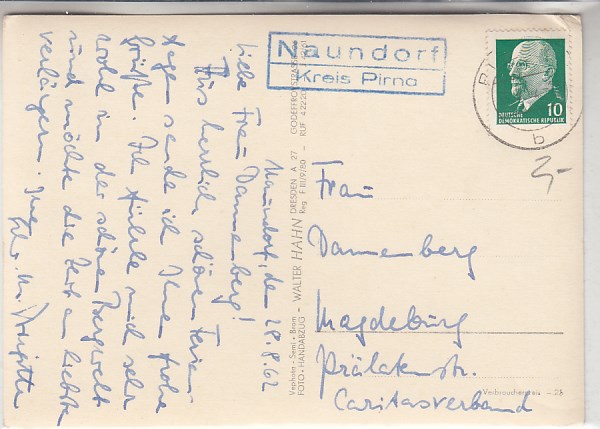 Naundorf
Kreis Pirna
DEUTSCHE
DEMOKRATISCHE REPUBLIK
10
b
3,-
Naundorf, den 28.8.62
Liebe Frau Dannenberg!
Für herrlich schöne Ferien-
tage sende ich Ihnen frohe
Grüße. Ich fühle mich sehr
wohl in der schönen Bergwelt
und möchte die Zeit am liebsten
verlängern.
Brigitte
Vephota - Semi - Brom
FOTO - HANDABZUG - WALTER HAHN DRESDEN A 27
Reg. F III/9/60 - RUF 4 22 20
Frau
Dannenberg
Magdeburg
Prälatenstr.
Caritasverband
Verbraucherpreis -.25